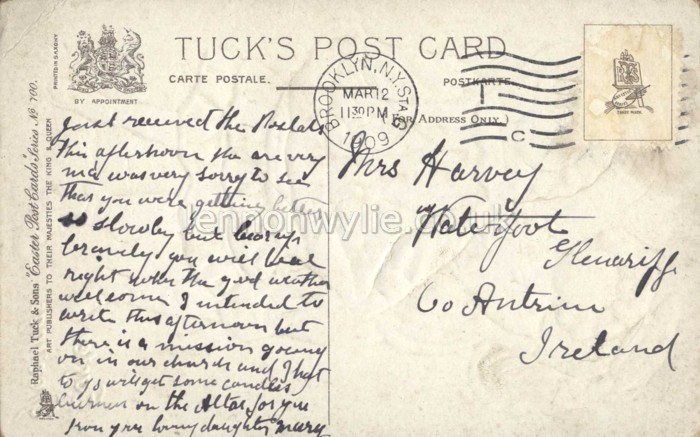 TUCK'S POST CARD
CARTE POSTALE.
POSTKARTE.
BY APPOINTMENT
(For Address Only.)
BROOKLYN, N.Y. STA. G
MAR 12
11 30 PM
1909
T
C
TRADE MARK
PRINTED IN SAXONY
Raphael Tuck & Sons' "Easter Post Cards" Series No. 700.
ART PUBLISHERS TO THEIR MAJESTIES THE KING & QUEEN
Just received the Postals
this afternoon the are very
was very sorry to see
that you were getting better
so slowly but
you will
right the good weather
will come I intended to
write this afternoon but
there is a mission
on in our church and I
to go will get some candles
on the Altar for you
from your loving daughter Mary
Mrs Harvey
Waterfoot
Glenariff
Co Antrim
Ireland
lennonwylie.co.uk